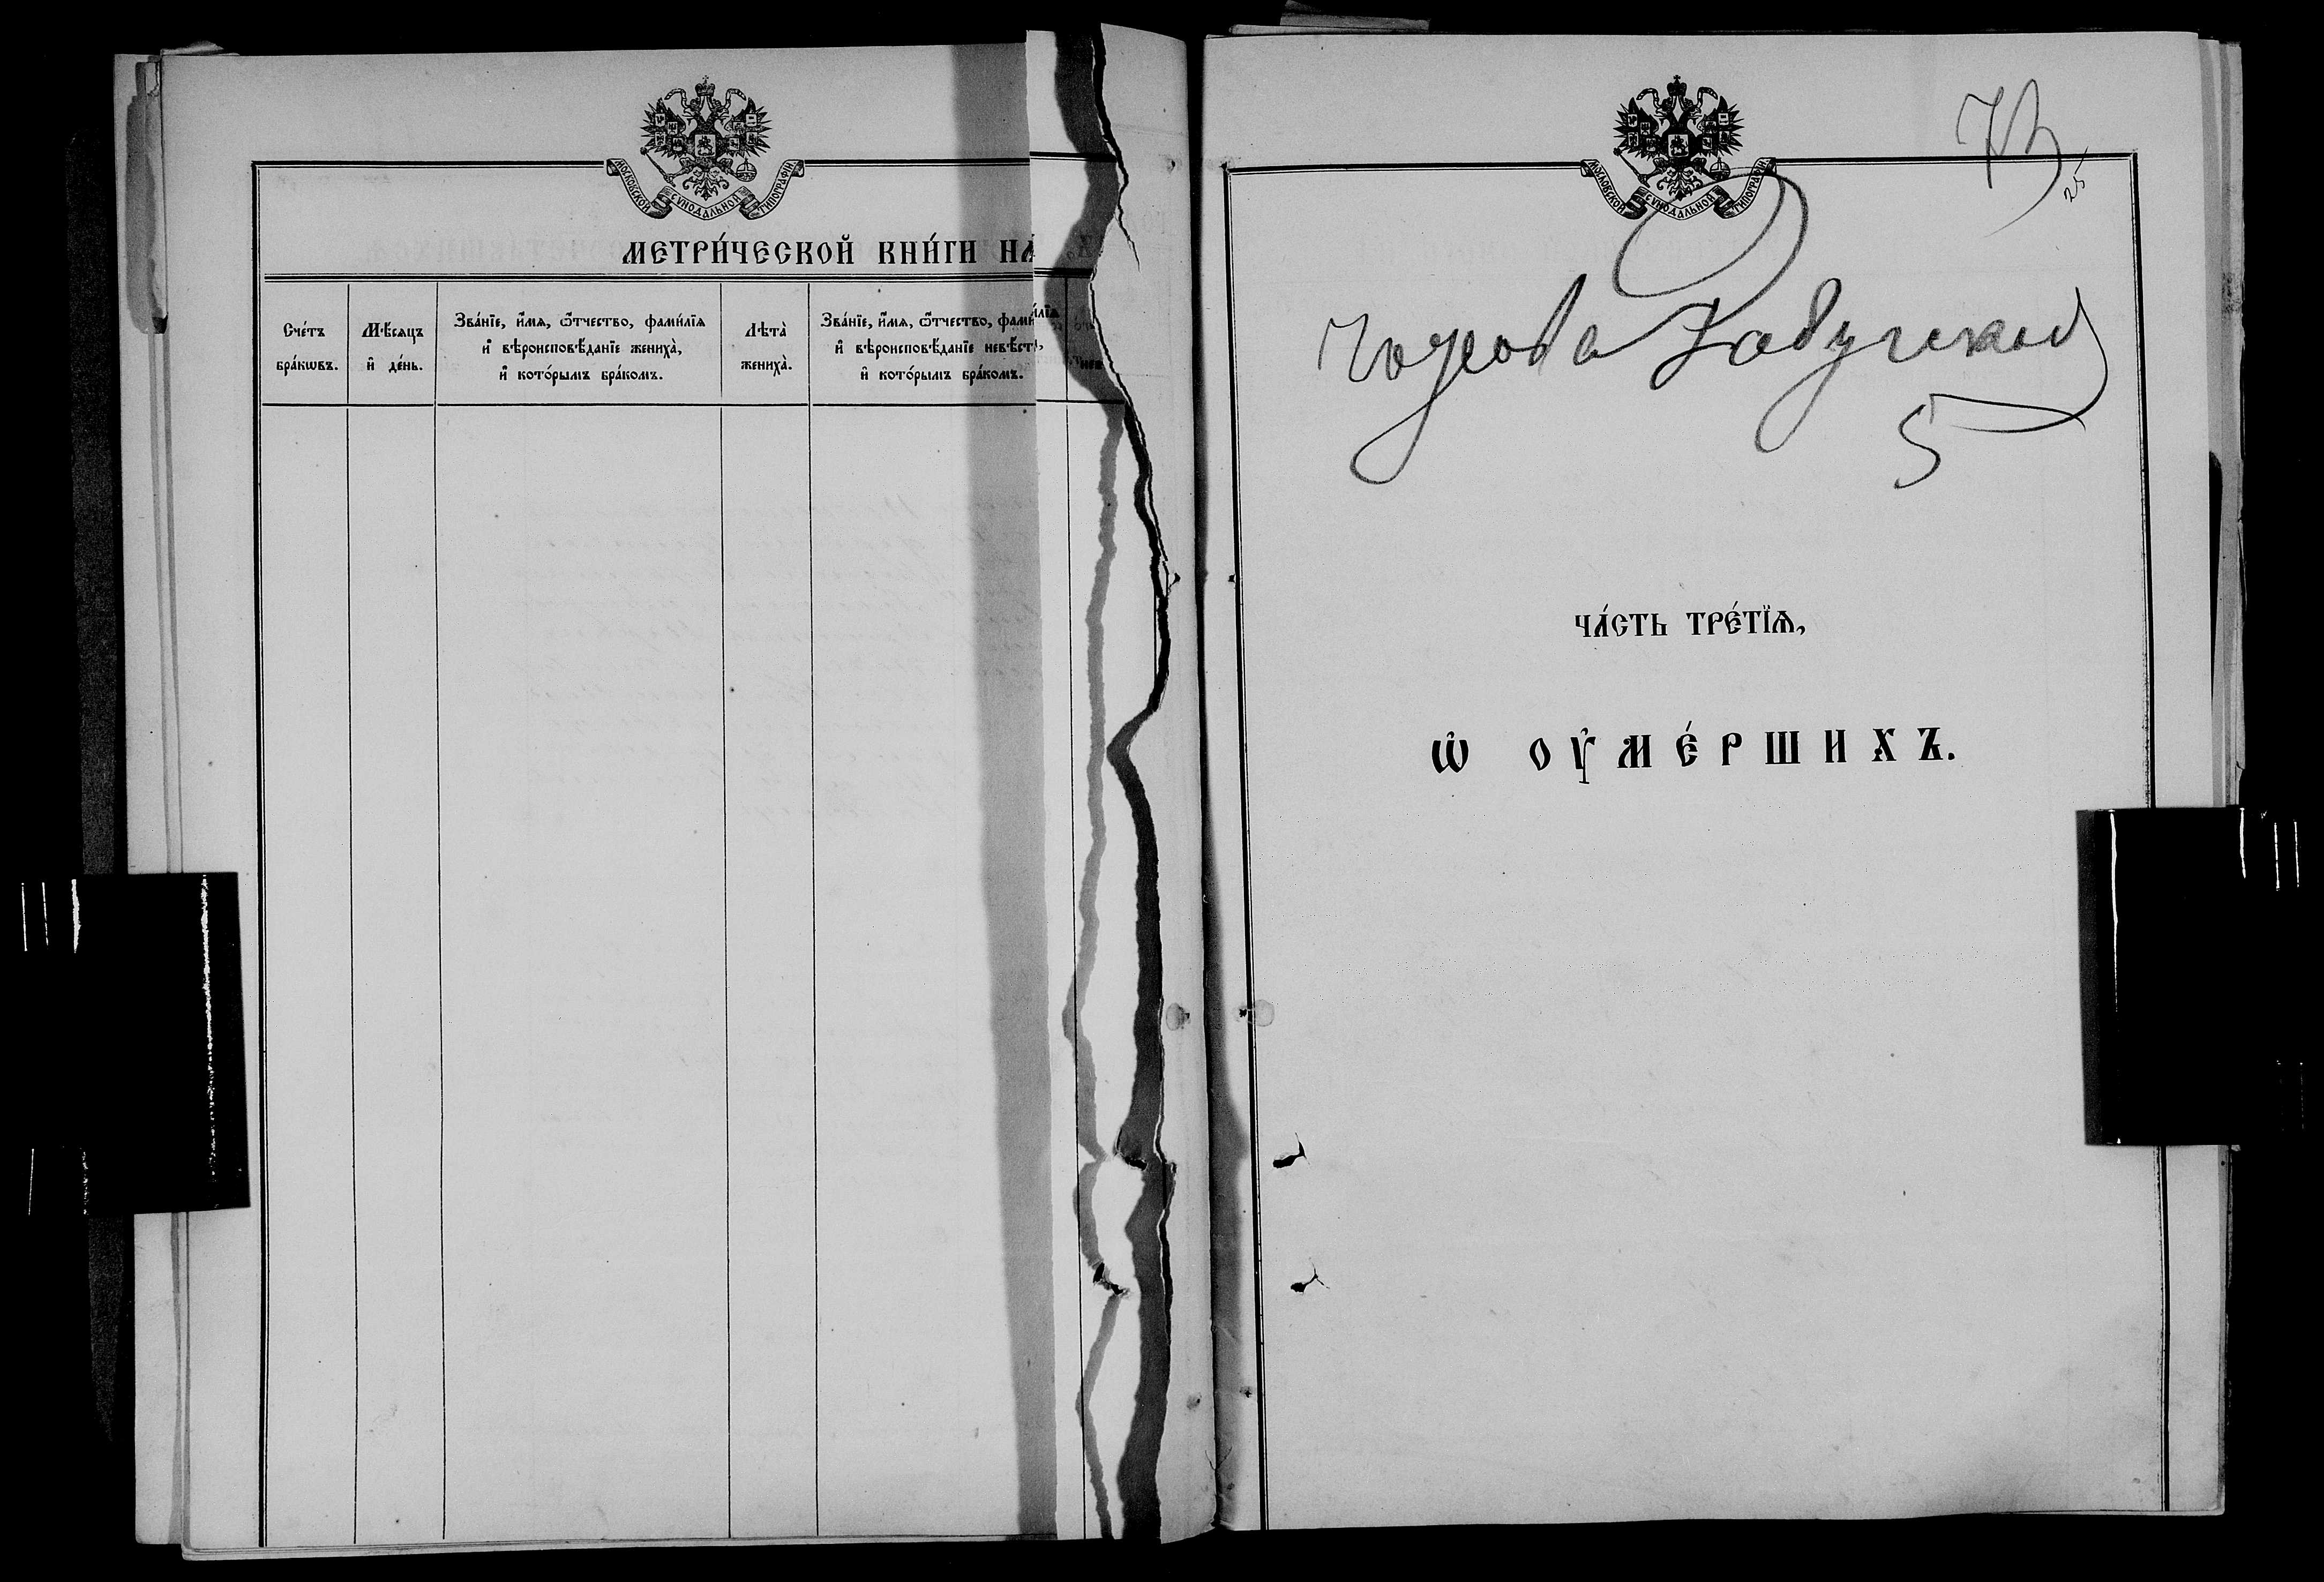 МОСКОВСКОЙ СѴНОДАЛЬНОЙ ТИПОГРАФІИ
МЕТРИ́ЧЕСКОЙ КНИ́ГИ НА
Сче́тъ бра́кѡвъ.
Мѣ́сѧцъ и҆ де́нь.
Зва́нїе, и҆́мѧ, ѻ҆́тчество, фами́лїѧ
и҆ вѣроисповѣ́данїе жениха̀,
и҆ кото́рымъ бра́комъ.
Лѣта̀ жениха̀.
Зва́нїе, и҆́мѧ, ѻ҆́тчество, фами́лїѧ
и҆ вѣроисповѣ́данїе невѣ́сты,
и҆ кото́рымъ бра́комъ.
МОСКОВСКОЙ СѴНОДАЛЬНОЙ ТИПОГРАФІИ
73
25
5
ЧА́СТЬ ТРЕ́ТЇѦ,
Ѡ҆ ОУ҆МЕ́РШИХЪ.